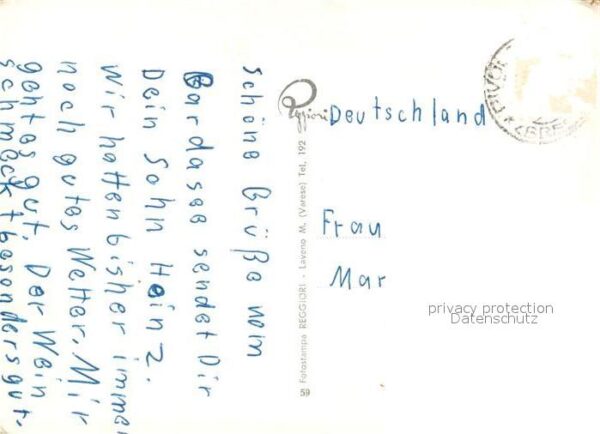 schöne Grüße vom
Gardasee sendet Dir
Dein Sohn Heinz.
Wir hatten bisher immer
noch gutes Wetter. Mir
geht es gut. Der Wein
schmeckt besonders gut.
Reggiori
59 Fotostampa REGGIORI - Laveno M. (Varese) Tel. 192
Deutschland
Frau
Mar
privacy protection
Datenschutz